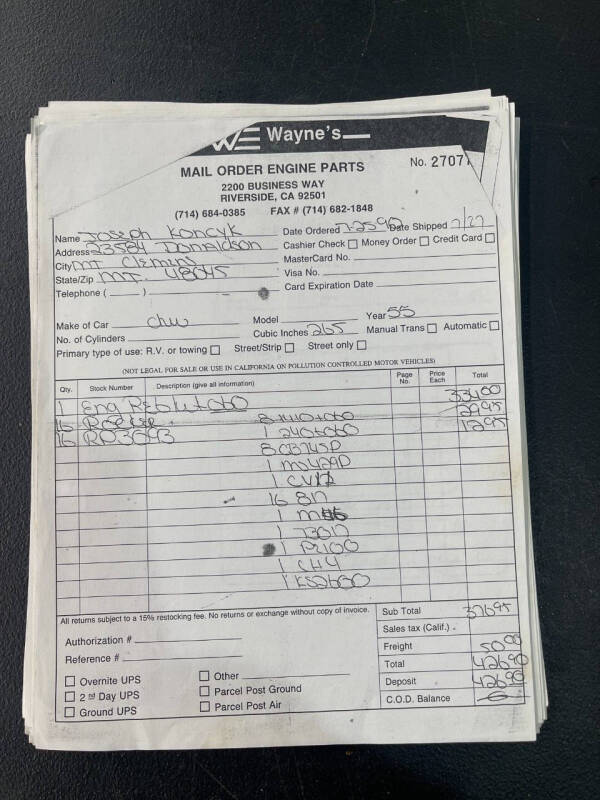 WE Wayne's
MAIL ORDER ENGINE PARTS No. 2707
2200 BUSINESS WAY
RIVERSIDE, CA 92501
(714) 684-0385 FAX # (714) 682-1848
Name Joseph Koncyk Date Ordered 7-25 90 Date Shipped 7/27
Address 23584 Donaldson Cashier Check □ Money Order □ Credit Card □
City MT Clemins MasterCard No.
State/Zip MI. 48045 Visa No.
Telephone ( ) Card Expiration Date
Make of Car Chev Model Year 55
No. of Cylinders Cubic Inches 265 Manual Trans □ Automatic □
Primary type of use: R.V. or towing □ Street/Strip □ Street only □
(NOT LEGAL FOR SALE OR USE IN CALIFORNIA ON POLLUTION CONTROLLED MOTOR VEHICLES)
Qty. Stock Number Description (give all information) Page No. Price Each Total
1 Eng 33400
16 2995
16 RO3693 1 1295
8 CB745P
1 MS429P
1
16 817
1
1
1
1 CH4
1 KS2600
All returns subject to a 15% restocking fee. No returns or exchange without copy of invoice. Sub Total 37695
Sales tax (Calif.)
Authorization # Freight 5000
Reference # Total 42690
□ Overnite UPS □ Other Deposit 42690
□ 2nd Day UPS □ Parcel Post Ground C.O.D. Balance
□ Ground UPS □ Parcel Post Air